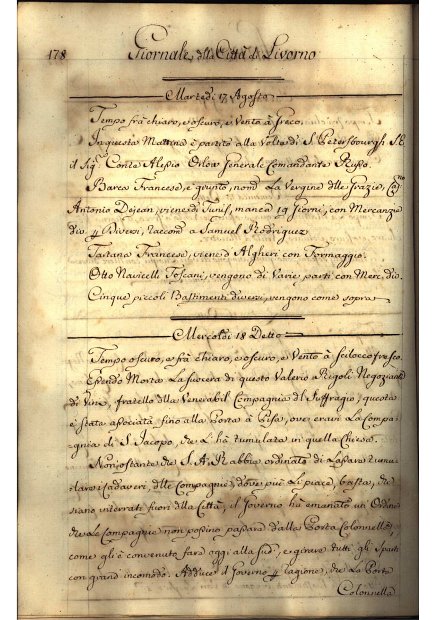 178 Giornale della Città di Livorno
Martedì 17 Agosto
Tempo frà chiaro, e oscuro, e Vento à Greco.
In questa Mattina è partito alla Volta di S. Petersbourgh S.E.
il Sig.r Conte Alessio Orlow Generale Comandante Russo.
Barco Francese, è giunto, nom.° La Vergine delle Grazie, Cap.no
Antonio Dejean, viene di Tunis, manca 19 Giorni, con Mercanzie
div. p Diversi, raccom.° a Samuel Rodriguez.
Tartana Francese, viene d'Algheri con Formaggio.
Otto Navicelli Toscani, vengono di Varie parti con Merc. div.
Cinque piccoli Bastimenti diversi, vengono come sopra
Mercoldì 18 Detto
Tempo oscuro, e frà chiaro, e oscuro, e Vento à Scilocco fresco.
Essendo Morta La Suocera di questo Valerio Rigoli Negoziante
di Vino, fratello della Venerabil Compagnia del Suffragio, questa
è stata associata fino alla Porta à Pisa, ove eravi La Compa-
gnia di S. Jacopo, che L'hà tumulata in quella Chiesa.
Nonostante che S.A.R. abbia ordinato di Lassare tumu-
lare i Cadaveri, dalle Compagnie, dove più Li piace, basta, che
siano interrati fuori della Città, il Governo hà emanato un'Ordine
che Le Compagnie non possino passare dalla Porta Colonnella,
come gli è convenuto fare oggi alla sud.a, e girare tutti gli Spalti
con grand'incomodo. Adduce il Governo p ragione, che La Porta
Colonnella